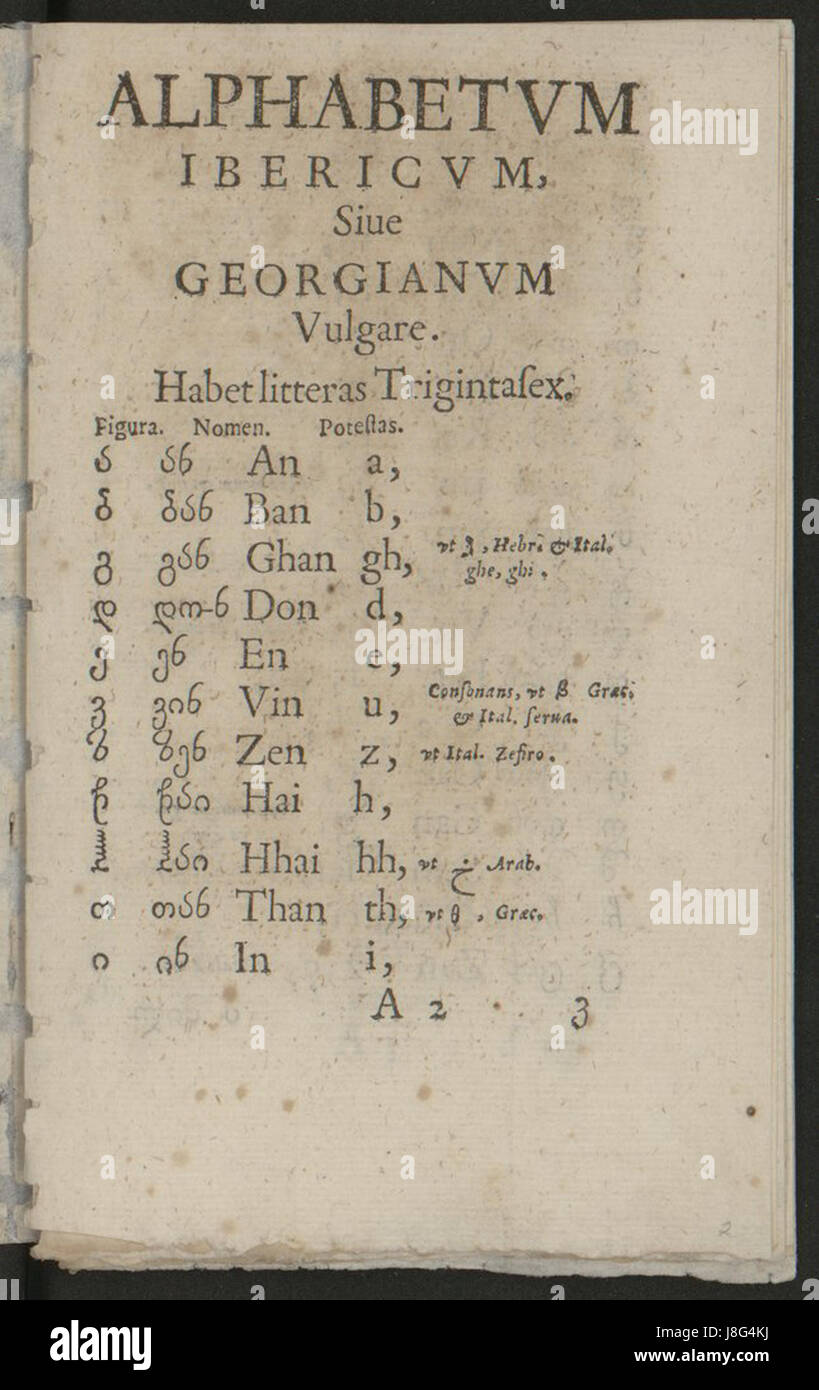 ALPHABETVM
IBERICVM,
Siue
GEORGIANVM
Vulgare.
Habet litteras Trigintaſex.
Figura. Nomen. Poteſtas.
ა ან An a,
ბ ბან Ban b,
გ გან Ghan gh, vt ג, Hebr. & Ital.
ghe, ghi.
დ დო-ნ Don d,
ე ენ En e,
ვ ვინ Vin u, Conſonans, vt β Græc.
& Ital. ſerua.
ზ ზენ Zen z, vt Ital. Zefiro.
ჱ ჱაი Hai h,
ჰ ჰაი Hhai hh, vt خ Arab.
თ თან Than th, vt θ, Græc.
ი ინ In i,
A 2 ვ
2
alamy
Image ID: J8G4KJ
www.alamy.com